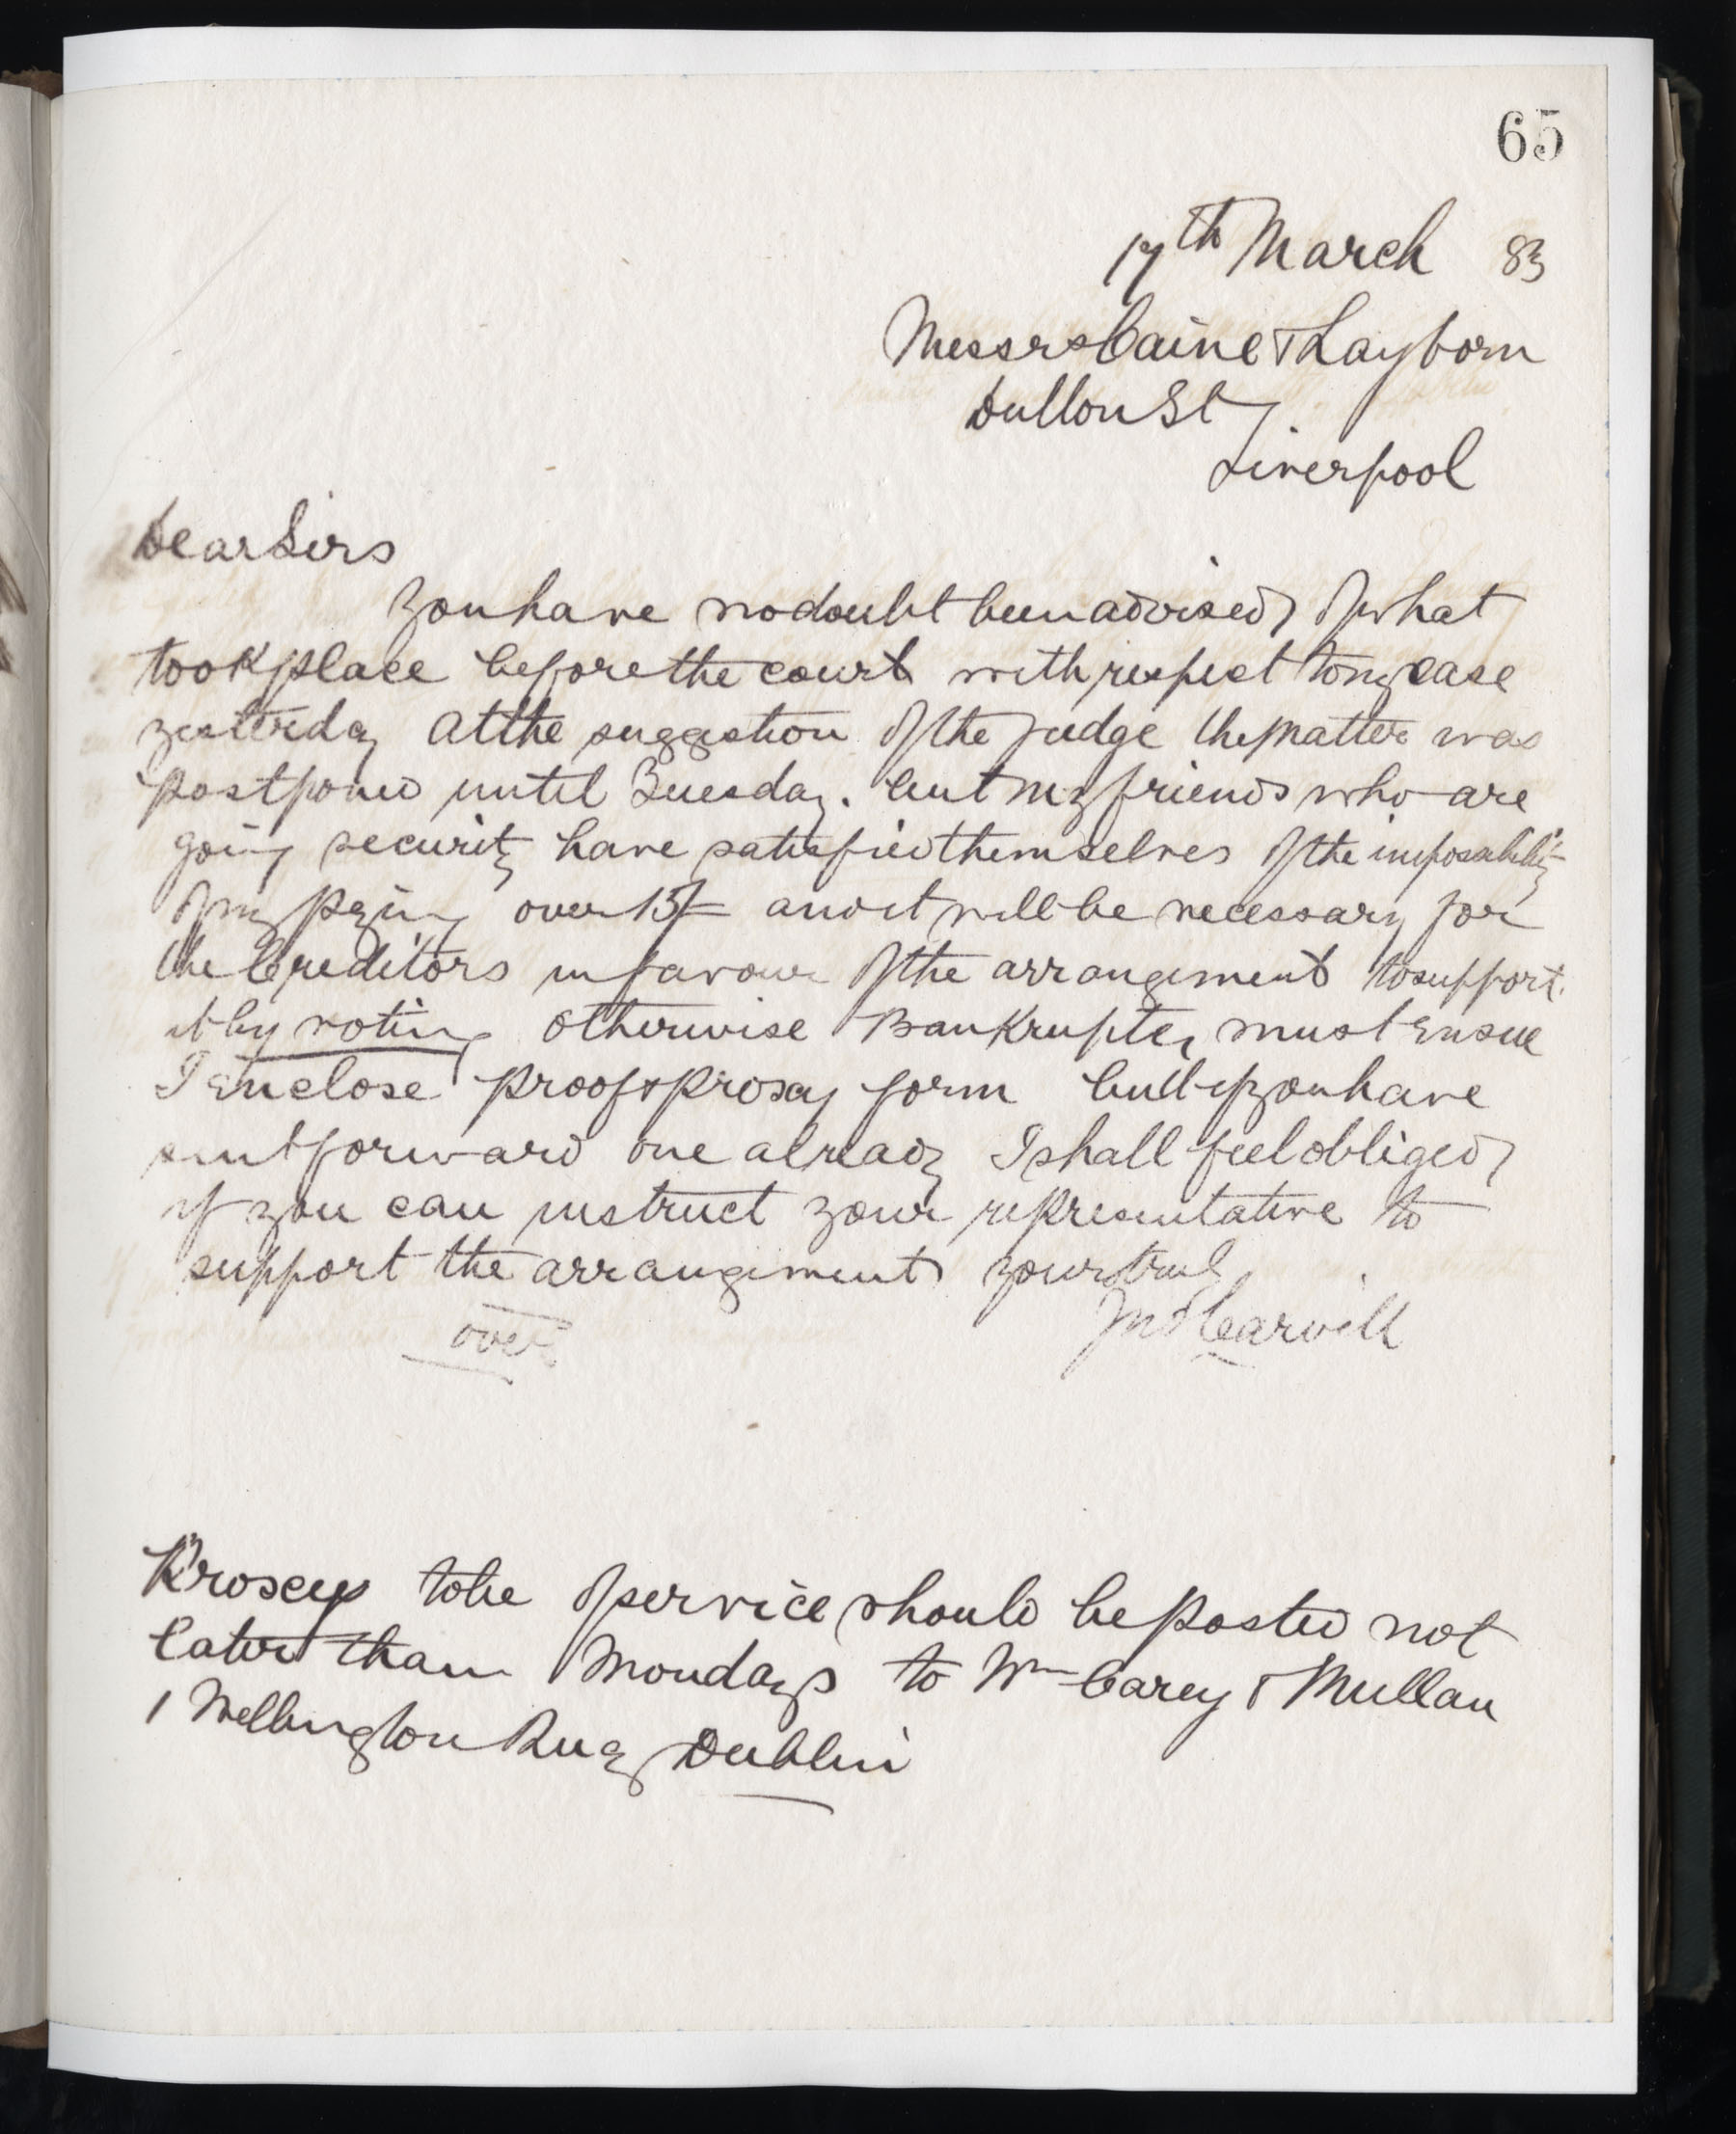 65
17th March 83
Messrs Caine & Layborn
Dutton St
Liverpool
Dear Sirs
You have no doubt been advised of what
took place before the court with respect to my case
yesterday At the suggestion of the Judge the matter was
postponed until Tuesday. but my friends who are
going security have satisfied themselves of the impossibility
of my paying over 15/= and it will be necessary for
the Creditors in favour of the arrangement to support
it by voting otherwise Bankruptcy must Ensue
I Enclose proof & proxy form but if you have
sent forward one already I shall feel obliged
if you can instruct your representative to
support the arrangement yours truly
over Jno Carvill
Proxys to be of service should be posted not
later than Mondays to Wm Carey & Mullan
1 Wellington Quay Dublin